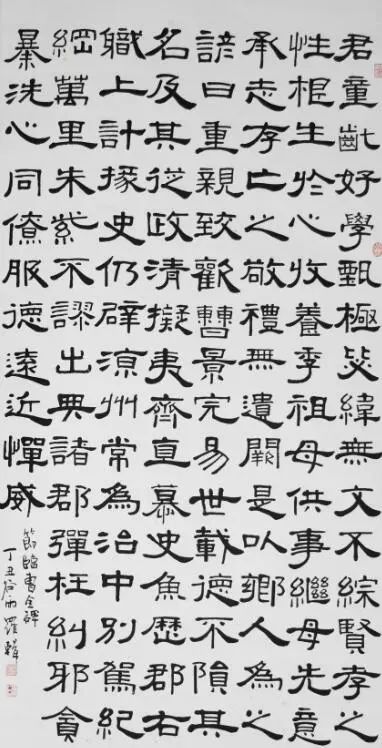 君童齔好學甄極毖緯無文不綜賢孝之
性根生於心收養季祖母供事繼母先意
承志存亡之敬禮無遺闕是以鄉人為之
諺曰重親致歡曹景完易世載德不隕其
名及其從政清擬夷齊直慕史魚歷郡右
職上計掾史仍辟涼州常為治中別駕紀
綱萬里朱紫不謬出典諸郡彈枉糾邪貪
暴洗心同僚服德遠近憚威
節臨曹全碑
丁丑谷雨羅